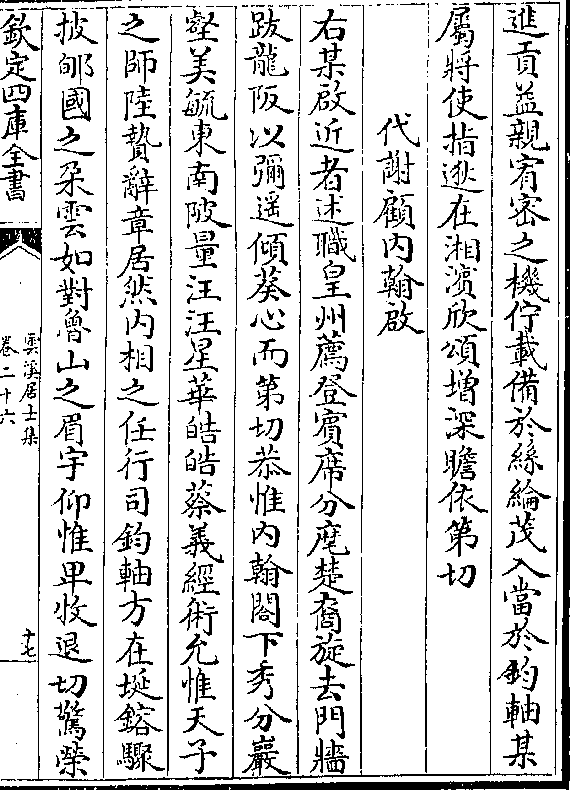 進貢益親宥密之機佇載備於絲綸茂入當於鈞軸某
屬將使指逖在湘濱欣頌增深瞻依第切
代謝顧内翰啟
右某啟近者述職皇州薦登賓席分麾楚裔旋去門牆
跋龍阪以彌遥傾葵心而第切恭惟内翰閣下秀分巖
壑美毓東南陂量汪汪星華皓皓蔡義經術允惟天子
之師陸贄辭章居然内相之任行司鈞軸方在埏鎔驟
披郇國之朶雲如對魯山之眉宇仰惟卑牧退切驚榮
欽定四庫全書
雲溪居士集
卷二十六
十七